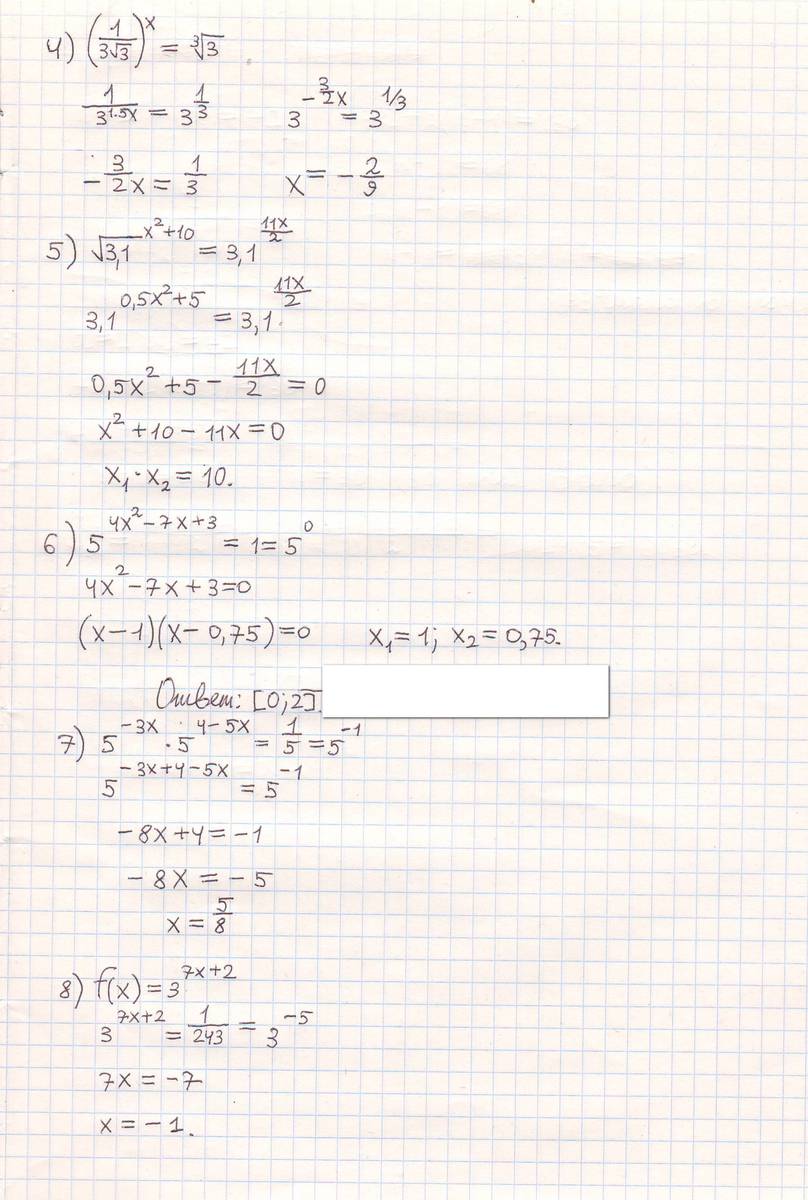 4) (1/(3√3))^x = ∛3
1/3^(1.5x) = 3^(1/3)    3^(-3/2x) = 3^(1/3)
-3/2x = 1/3    x = -2/9
5) √3,1^(x²+10) = 3,1^(11x/2)
3,1^(0,5x²+5) = 3,1^(11x/2)
0,5x² + 5 - 11x/2 = 0
x² + 10 - 11x = 0
x₁ · x₂ = 10.
6) 5^(4x²-7x+3) = 1 = 5^0
4x² - 7x + 3 = 0
(x-1)(x-0,75) = 0    x₁ = 1; x₂ = 0,75.
Ответ: [0;2].
7) 5^(-3x) · 5^(4-5x) = 1/5 = 5^(-1)
5^(-3x+4-5x) = 5^(-1)
-8x + 4 = -1
-8x = -5
x = 5/8
8) f(x) = 3^(7x+2)
3^(7x+2) = 1/243 = 3^(-5)
7x = -7
x = -1.